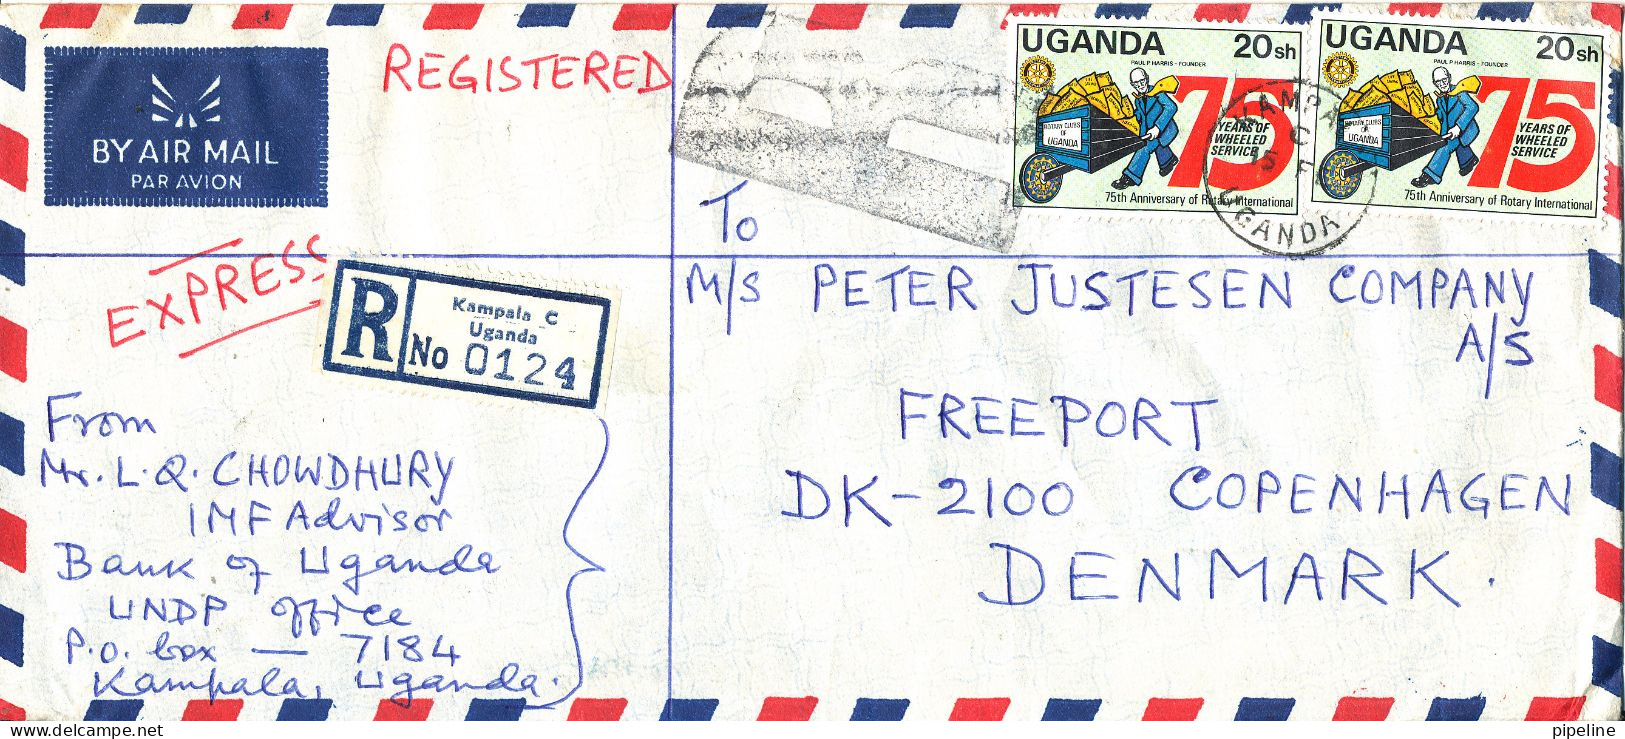 BY AIR MAIL
PAR AVION
REGISTERED
EXPRESS
R
Kampala C
Uganda
No 0124
From
Mr. L. Q. CHOWDHURY
IMF Advisor
Bank of Uganda
UNDP office
P.O. box — 7184
Kampala, Uganda.
UGANDA 20sh
PAUL P HARRIS - FOUNDER
75
YEARS OF
WHEELED
SERVICE
ROTARY CLUBS
OF
UGANDA
75th Anniversary of Rotary International
UGANDA 20sh
PAUL P HARRIS - FOUNDER
75
YEARS OF
WHEELED
SERVICE
ROTARY CLUBS
OF
UGANDA
75th Anniversary of Rotary International
KAMPA
UGANDA
To
M/S PETER JUSTESEN COMPANY
A/S
FREEPORT
DK-2100 COPENHAGEN
DENMARK.
pipeline